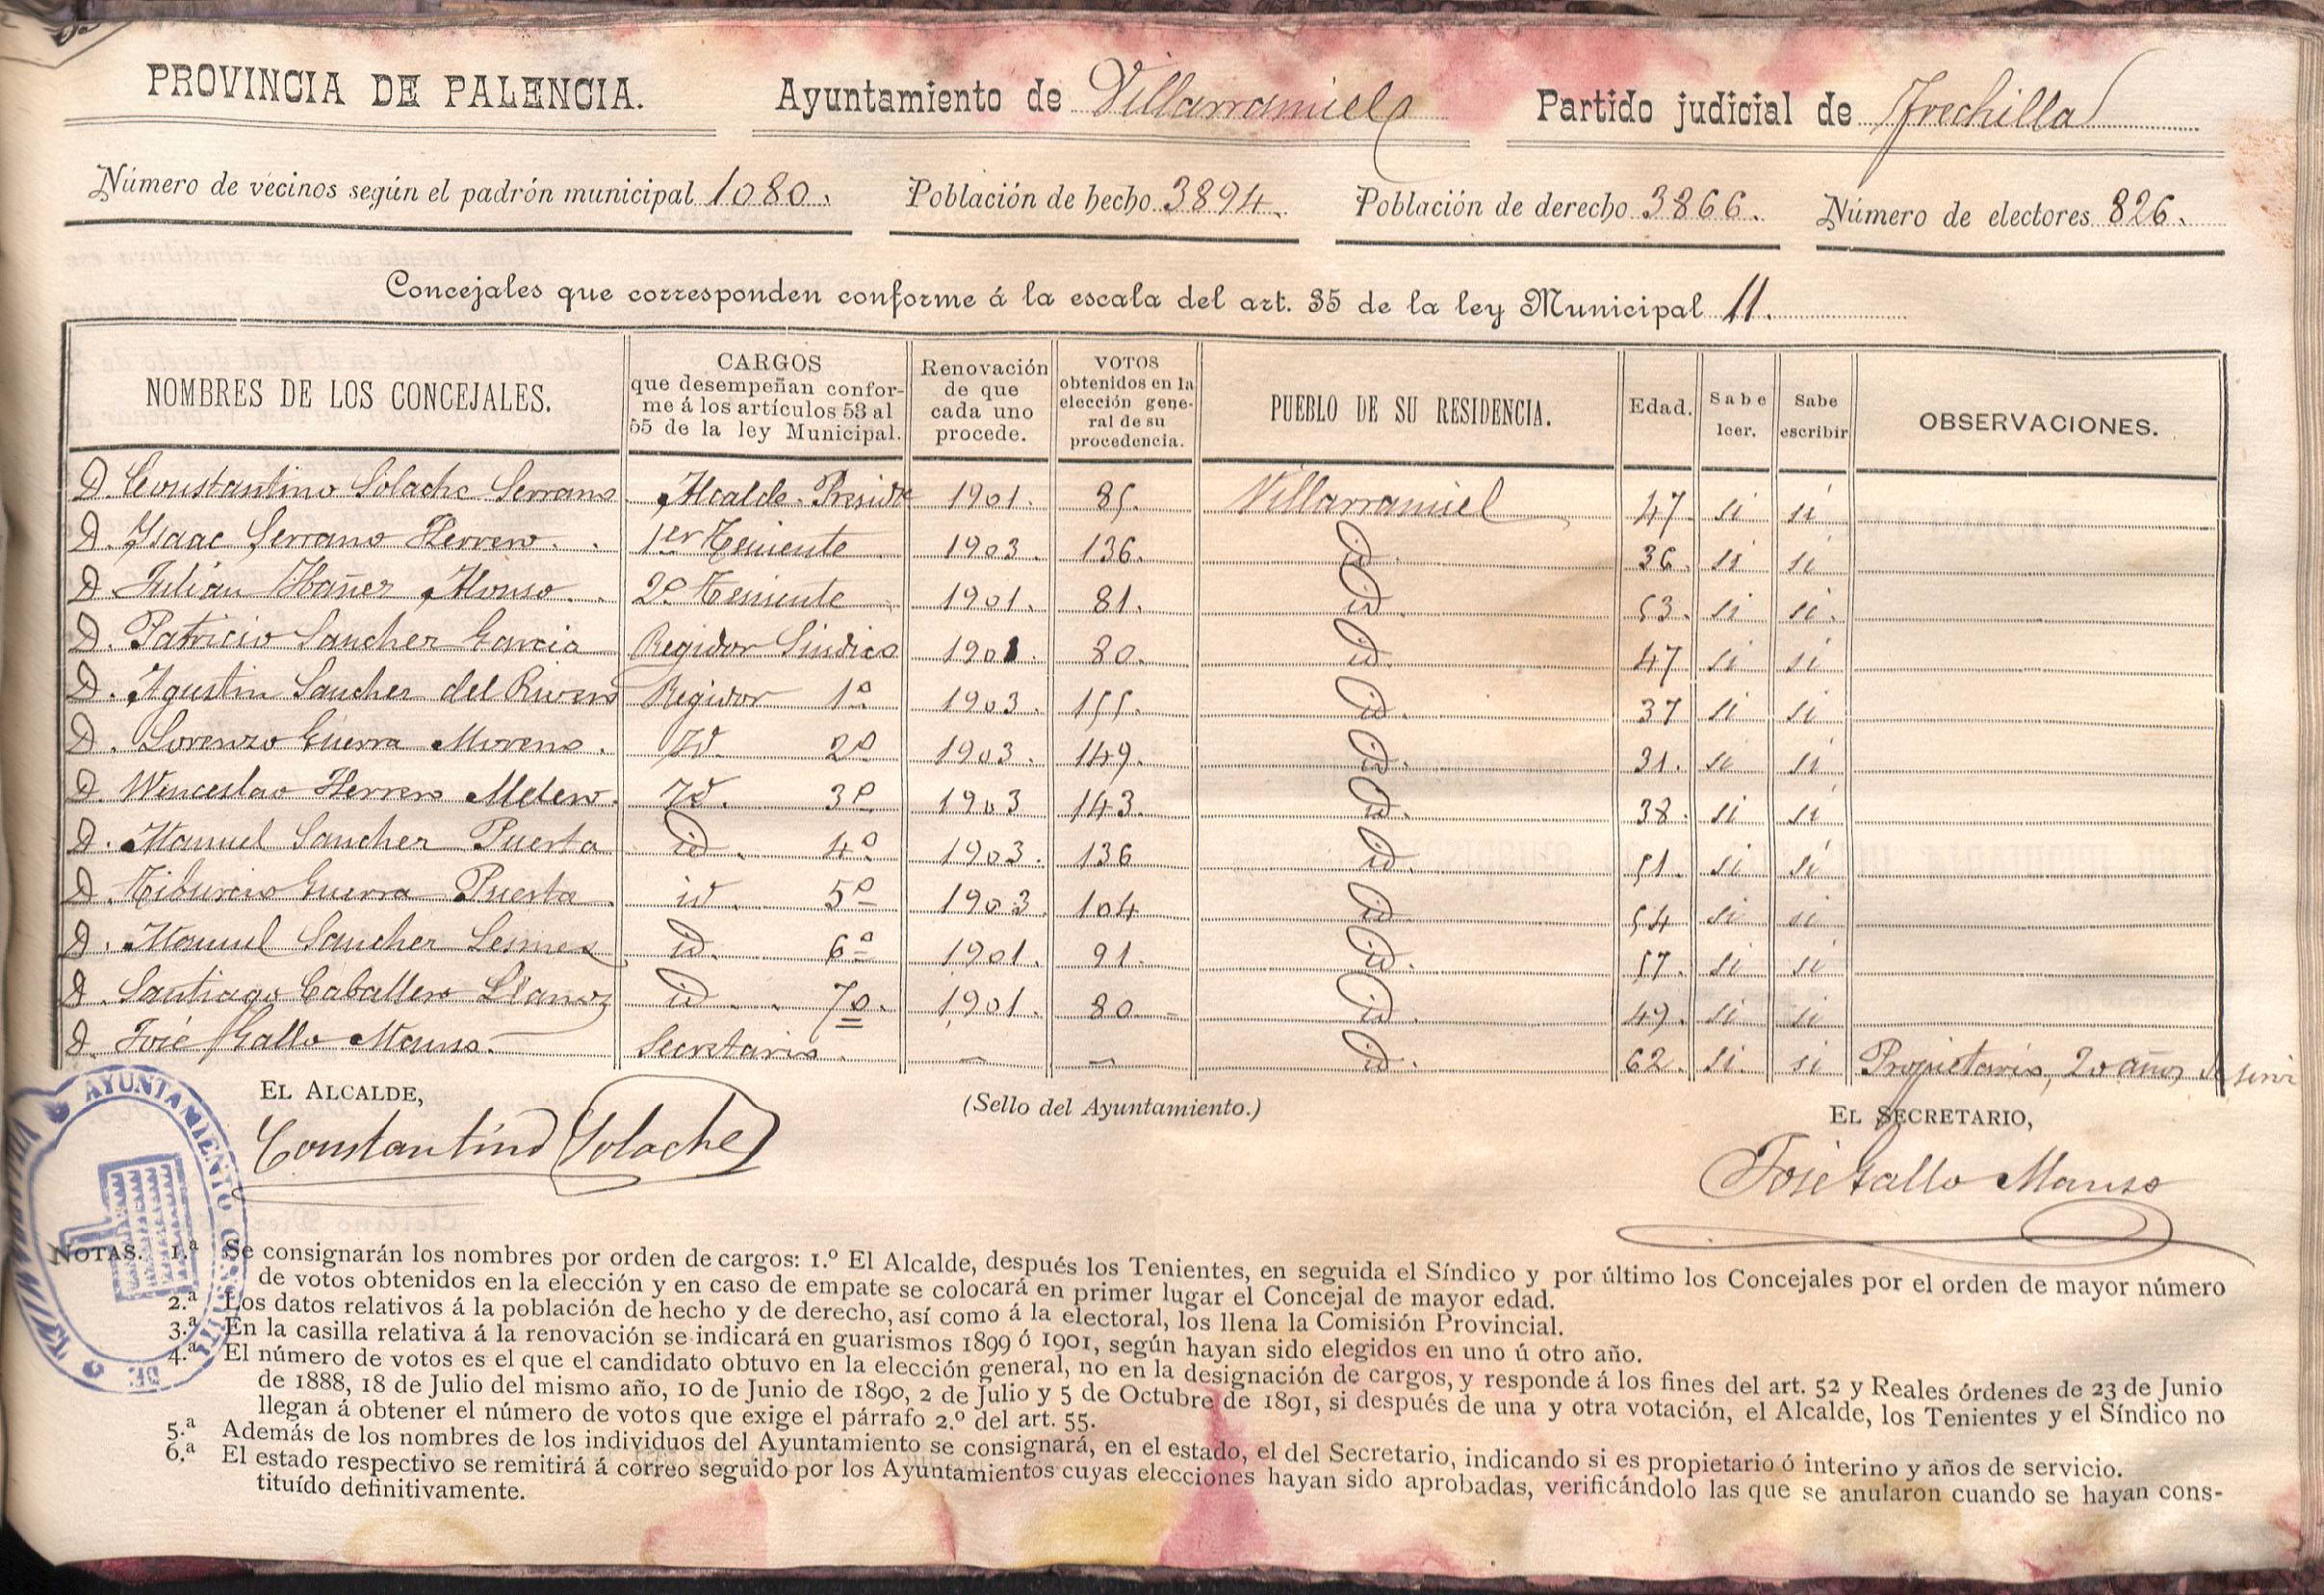 PROVINCIA DE PALENCIA. Ayuntamiento de Villarramiel Partido judicial de Frechilla
Número de vecinos según el padrón municipal 1080. Población de hecho 3894. Población de derecho 3866. Número de electores 826.
Concejales que corresponden conforme á la escala del art. 35 de la ley Municipal 11.
NOMBRES DE LOS CONCEJALES. CARGOS que desempeñan conforme á los artículos 53 al 55 de la ley Municipal. Renovación de que cada uno procede. VOTOS obtenidos en la elección general de su procedencia. PUEBLO DE SU RESIDENCIA. Edad. Sabe leer. Sabe escribir OBSERVACIONES.
D. Constantino Solache Serrano Alcalde-Preside 1901. 85. Villarramiel 47 si si
D. Isaac Serrano Herrero. 1er Teniente 1903. 136. id. 36. si si
D. Julián Ibañez Alonso. 2º Teniente 1901. 81. id. 53. si si.
D. Patricio Sanchez Garcia Regidor Sindico 1901. 80. id. 47 si si
D. Agustin Sanchez del Rivero Regidor 1º 1903. 155. id. 37 si si
D. Lorenzo Guerra Moreno. Id. 2º 1903. 149. id. 31. si si
D. Wenceslao Herrero Melero. Id. 3º 1903 143. id. 38. si si
D. Manuel Sanchez Puerta id. 4º 1903. 136 id. 51. si si
D. Tiburcio Guerra Puerta. id. 5º 1903. 104 id 54 si si
D. Manuel Sancher Lesmes id. 6º 1901. 91. id. 57. si si
D. Santiago Caballero Llanoz id. 7º. 1901. 80 id. 49. si si
D. José Gallo Manso. Secretario. — — id. 62. si. si Propietario, 20 años de servi
EL ALCALDE, (Sello del Ayuntamiento.) EL SECRETARIO,
Constantino Solache José Gallo Manso
AYUNTAMIENTO CONSTIT. DE VILLARRAMIEL
NOTAS. 1.ª Se consignarán los nombres por orden de cargos: 1.º El Alcalde, después los Tenientes, en seguida el Síndico y por último los Concejales por el orden de mayor número
de votos obtenidos en la elección y en caso de empate se colocará en primer lugar el Concejal de mayor edad.
2.ª Los datos relativos á la población de hecho y de derecho, así como á la electoral, los llena la Comisión Provincial.
3.ª En la casilla relativa á la renovación se indicará en guarismos 1899 ó 1901, según hayan sido elegidos en uno ú otro año.
4.ª El número de votos es el que el candidato obtuvo en la elección general, no en la designación de cargos, y responde á los fines del art. 52 y Reales órdenes de 23 de Junio
de 1888, 18 de Julio del mismo año, 10 de Junio de 1890, 2 de Julio y 5 de Octubre de 1891, si después de una y otra votación, el Alcalde, los Tenientes y el Síndico no
llegan á obtener el número de votos que exige el párrafo 2.º del art. 55.
5.ª Además de los nombres de los individuos del Ayuntamiento se consignará, en el estado, el del Secretario, indicando si es propietario ó interino y años de servicio.
6.ª El estado respectivo se remitirá á correo seguido por los Ayuntamientos cuyas elecciones hayan sido aprobadas, verificándolo las que se anularon cuando se hayan cons-
tituído definitivamente.